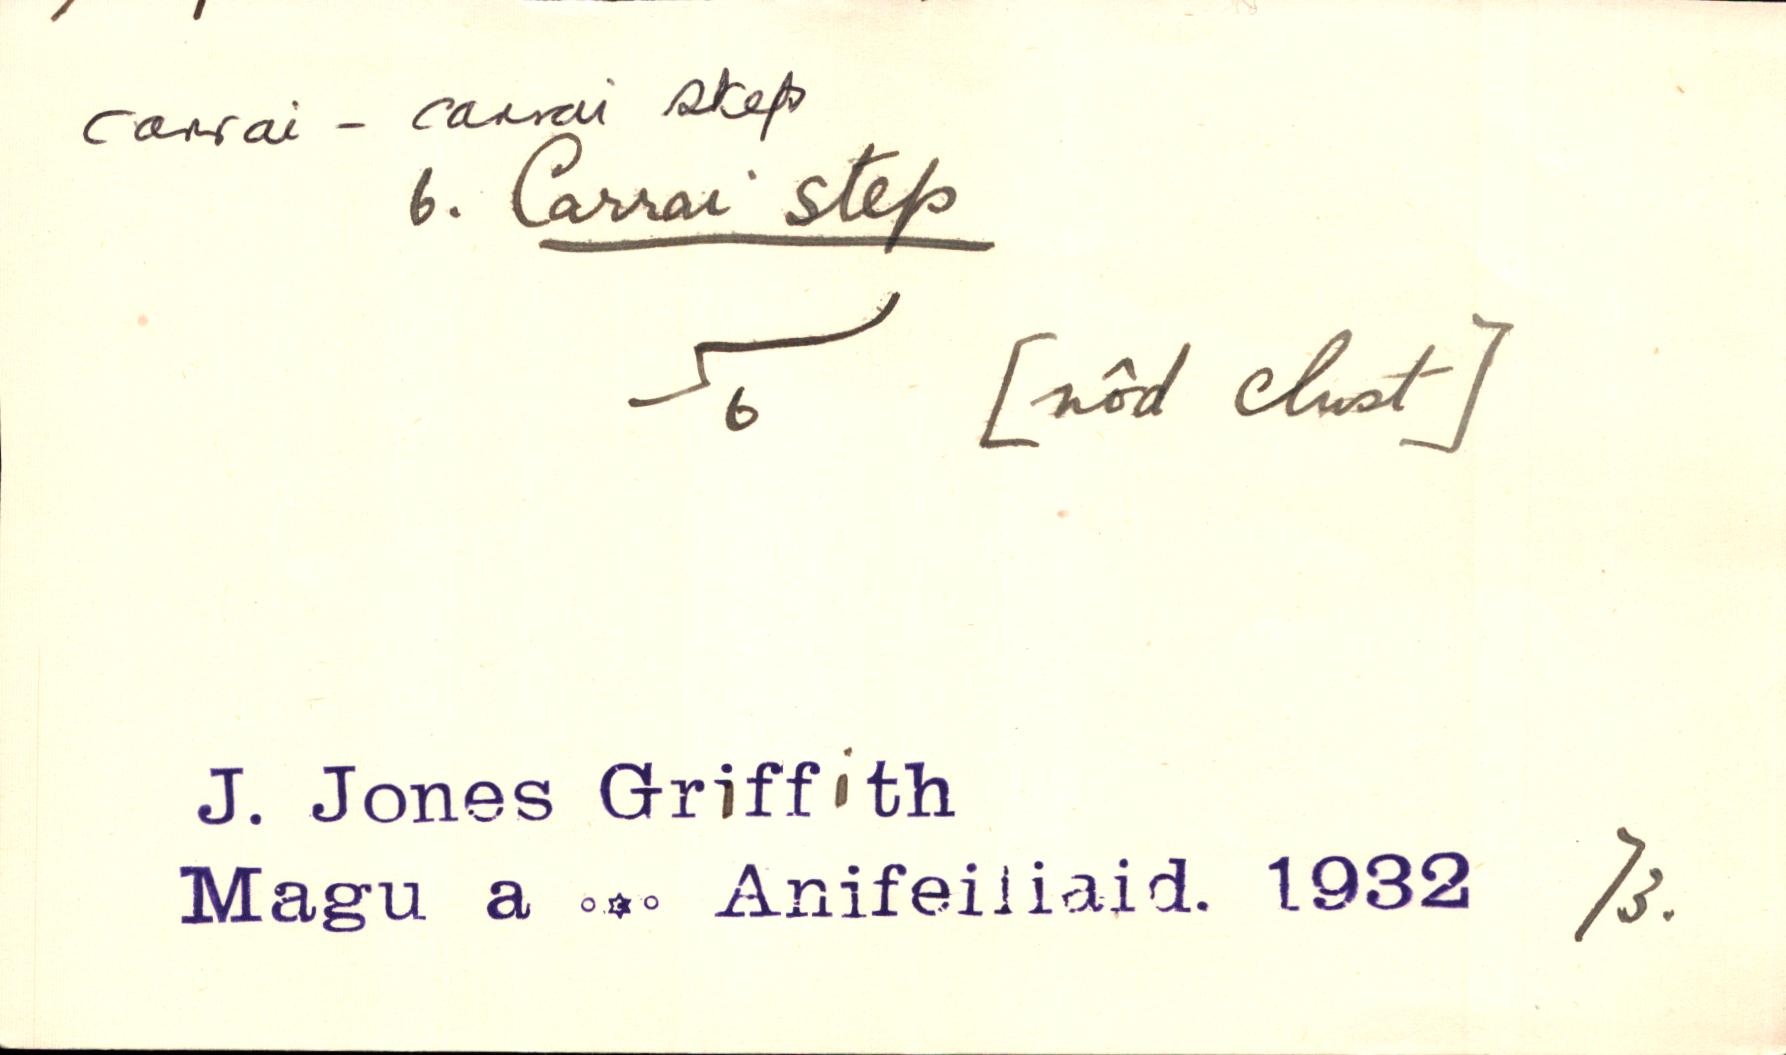 carrai - carrai step
6. Carrai step
6
[nôd clust]
J. Jones Griffith
Magu a ... Anifeiliaid. 1932 73.